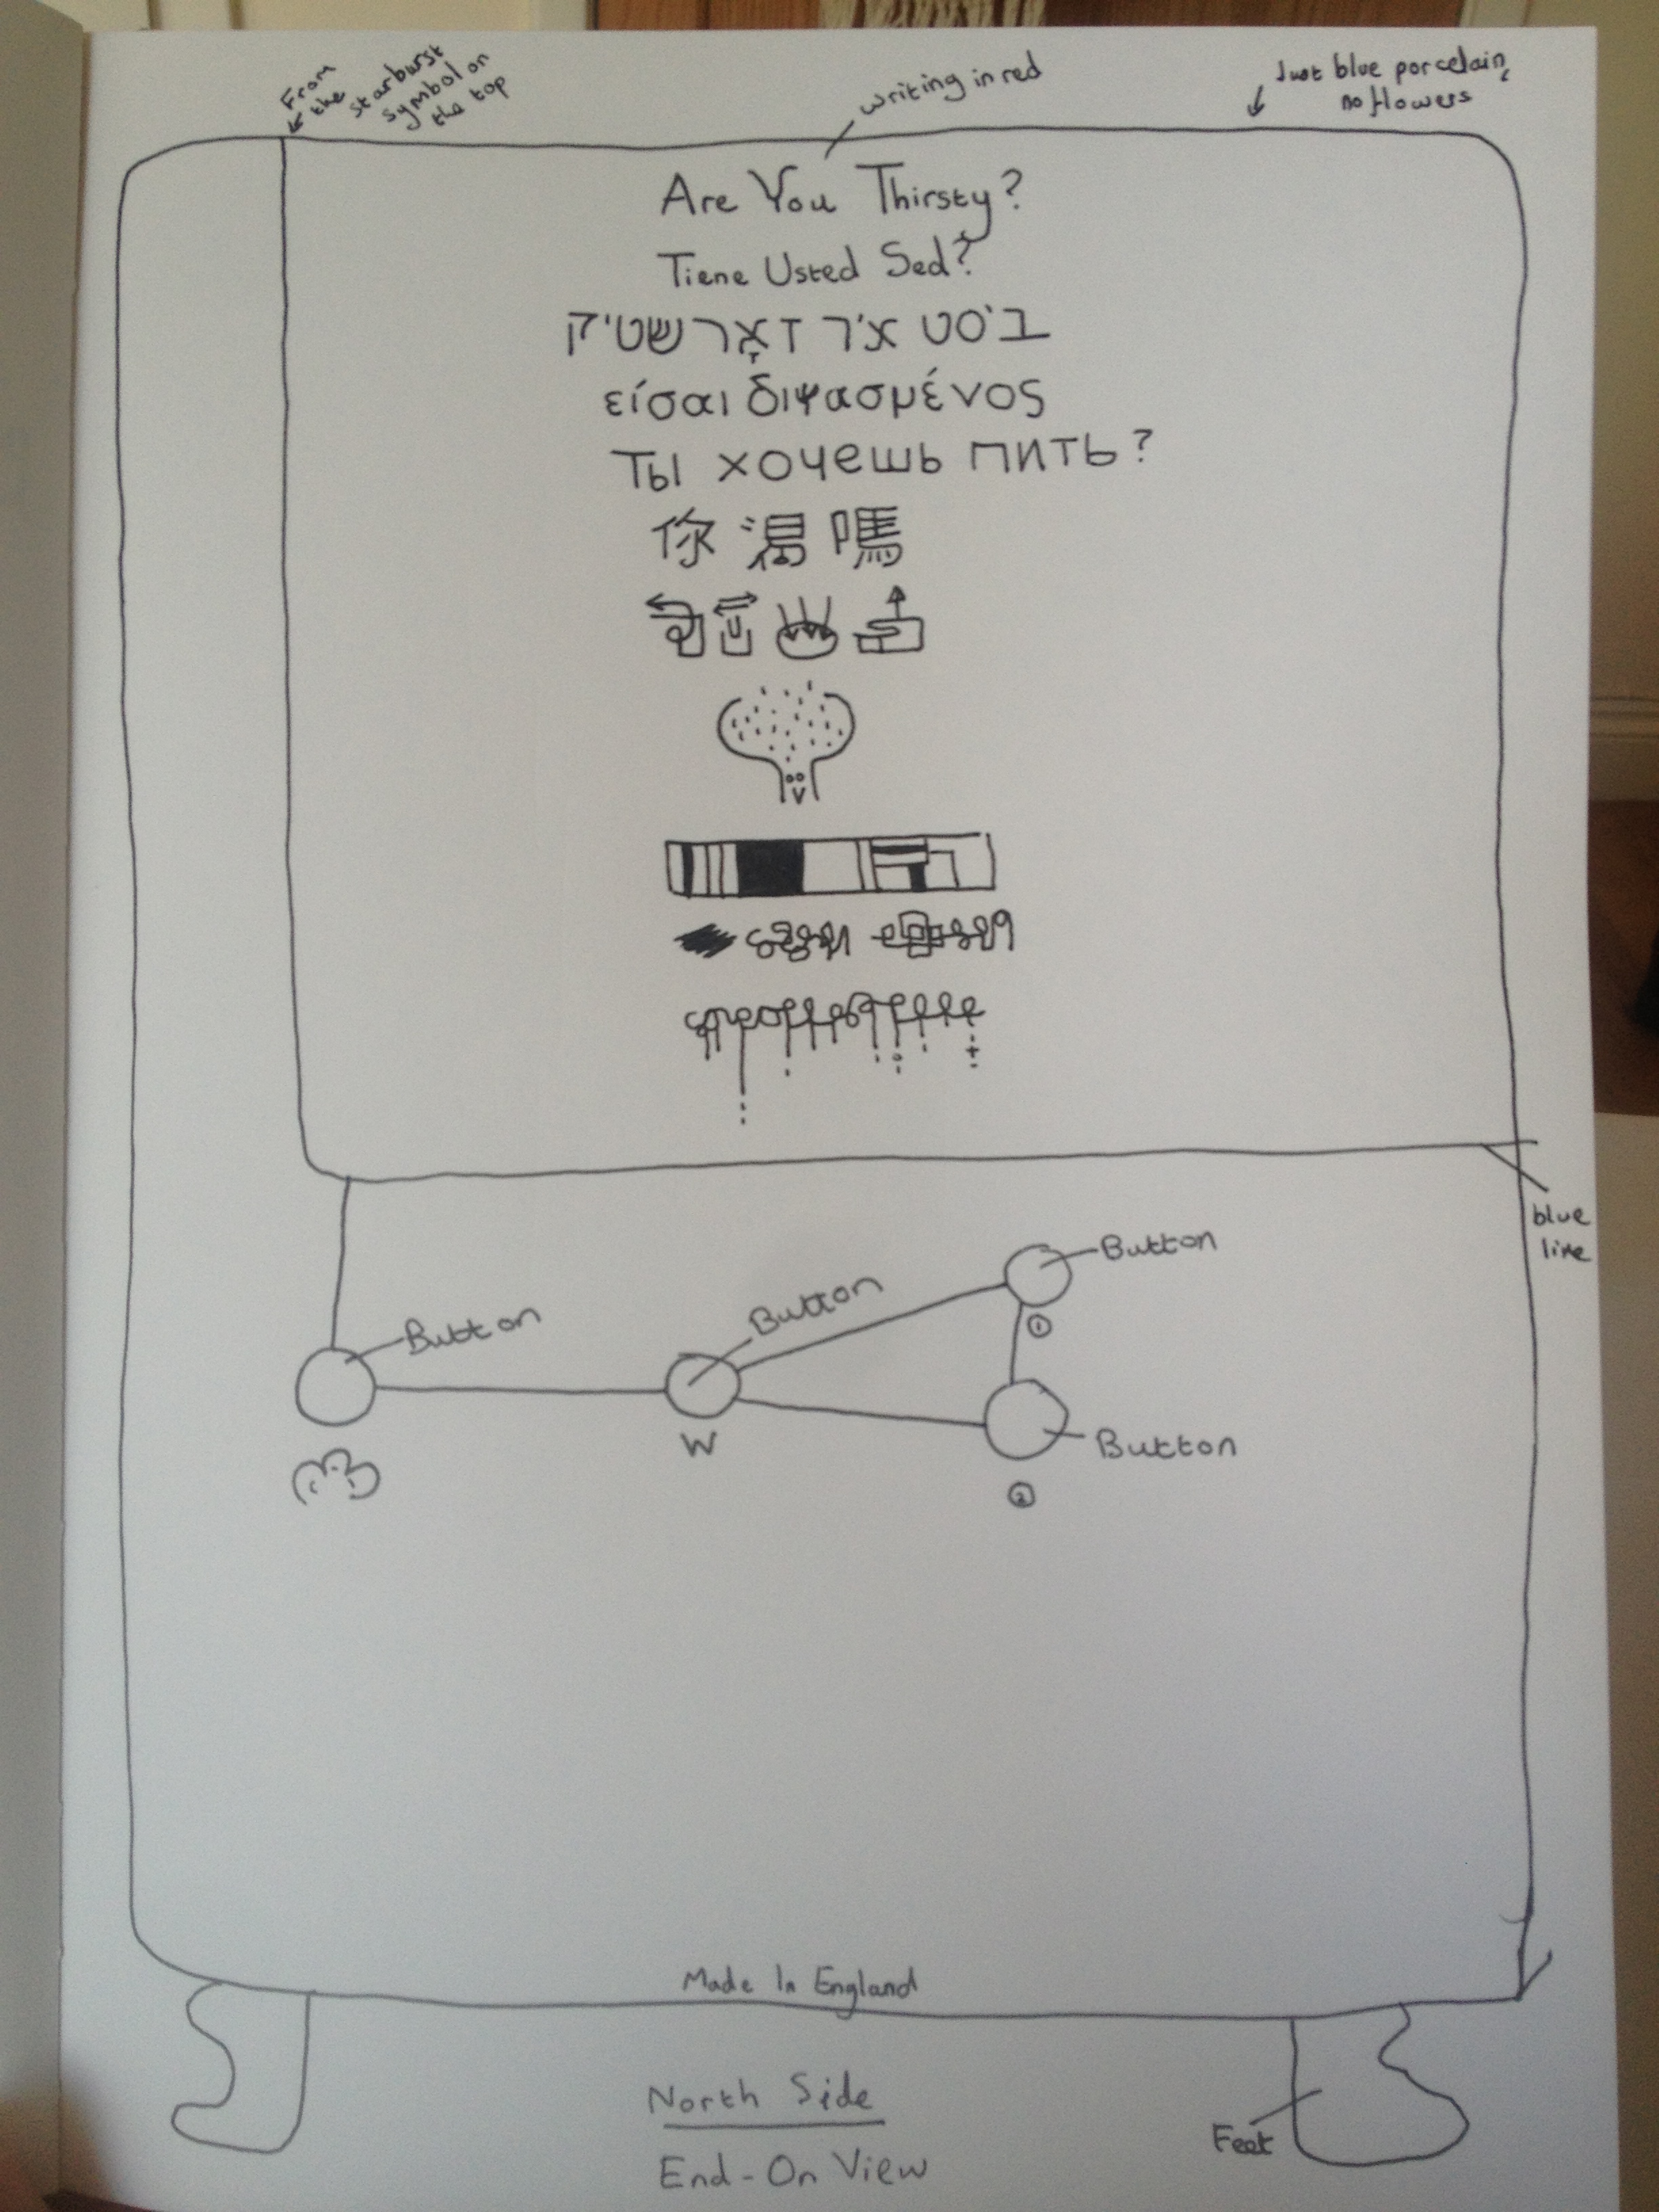 From
the
starburst
symbol on
the top
writing in red
Just blue porcelain,
no flowers
Are You Thirsty?
Tiene Usted Sed?
ביסט איר דאָרשטיק
είσαι διψασμένος
Ты хочешь пить?
你渴嗎
blue
line
Button
Button
Button
①
Button
W
②
Made In England
North Side
End-On View
Feet